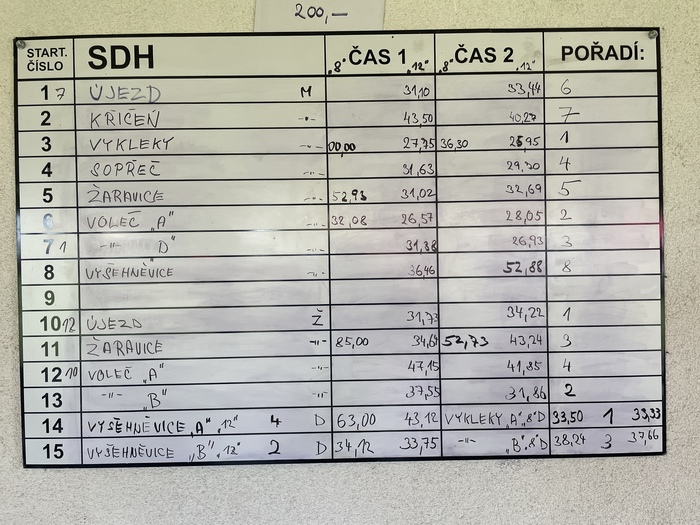 200,-
START. ČÍSLO SDH "8" ČAS 1 "12" "8" ČAS 2 "12" POŘADÍ:
1 7 ÚJEZD M 31,10 33,44 6
2 KŘIČEŇ -"- 43,50 40,27 7
3 VYKLEKY -"- 00,00 27,75 36,30 25,95 1
4 SOPŘEČ -"- 31,63 29,30 4
5 ŽARAVICE -"- 52,93 31,02 32,69 5
6 VOLEČ "A" -"- 32,08 26,57 28,05 2
7 1 -"- D" -"- 31,38 26,93 3
8 VYŠEHNĚVICE -"- 36,46 52,88 8
9
10 12 ÚJEZD Ž 31,73 34,22 1
11 ŽARAVICE -"- 85,00 34,64 52,73 43,24 3
12 10 VOLEČ "A" -"- 47,15 41,85 4
13 -"- "B" -"- 37,55 31,86 2
14 VYŠEHNĚVICE "A" "12" 4 D 63,00 43,12 VYKLEKY "A" "8" D 33,50 1 33,33
15 VYŠEHNĚVICE "B" "12" 2 D 34,12 33,75 -"- "B" "8" D 38,24 3 37,66